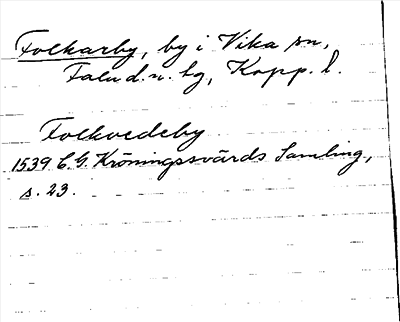 Folkarby, by i Vika sn,
Falu d.n. tg, Kopp. l.
Folkvedeby
1539 C.G. Kröningssvärds Samling,
s. 23.